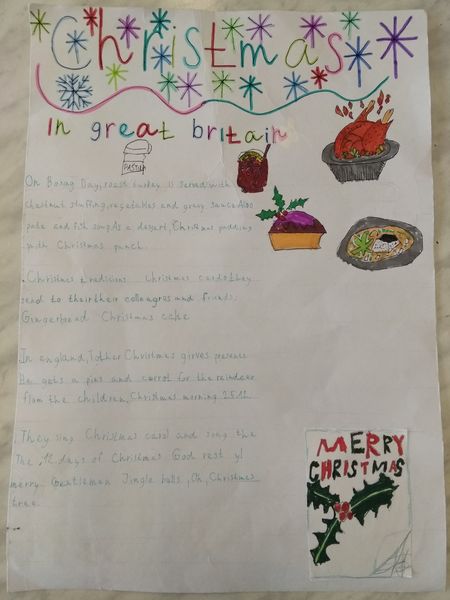 Christmas
In great britain
On Boxing Day, roast turkey is served with
chestnut stuffing, vegetables and gravy sauce. Also
and fish soup. As a dessert, Christmas pudding
with Christmas punch.
Christmas traditions Christmas cards they
send to their their colleagues and friends.
Gingerbread Christmas cake
In england, Father Christmas gives presents
He gets a pies and carrot for the reindeer
from the children, Christmas morning 25.12.
They sing Christmas carol and song the
The 12 days of Christmas God rest ye
merry Gentleman Jingle balls, Oh, Christmas
tree
MERRY
CHRISTMAS